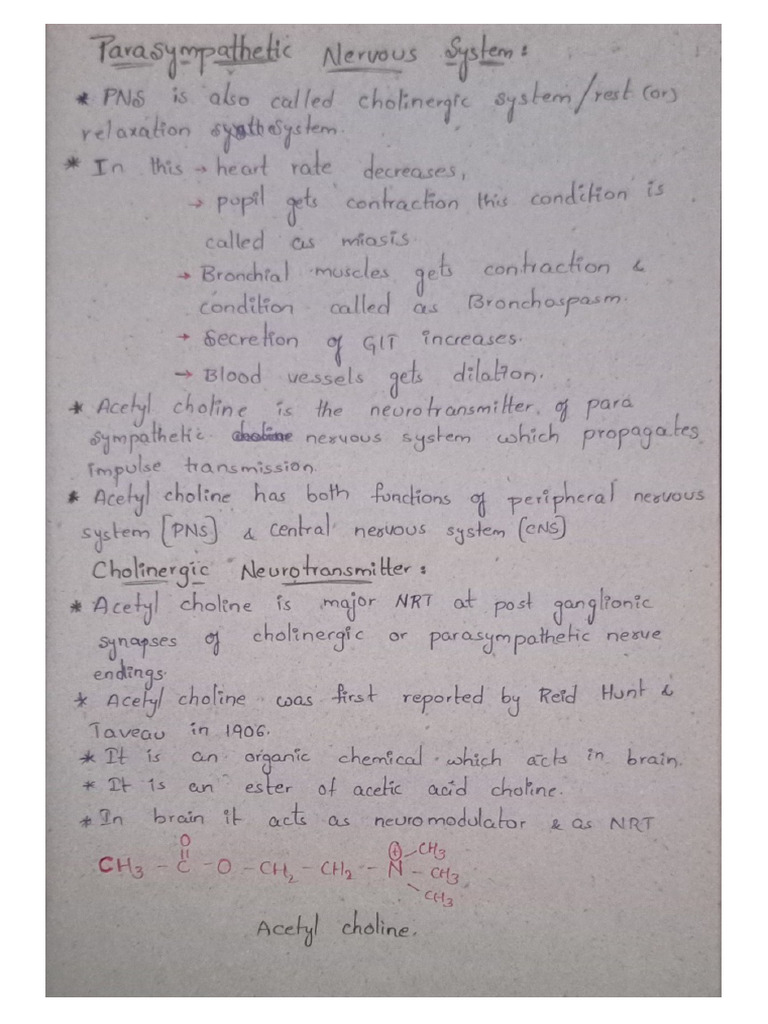 Parasympathetic Nervous System:
* PNS is also called cholinergic system/rest (or)
relaxation system.
* In this → heart rate decreases,
→ pupil gets contraction this condition is
called as miosis.
→ Bronchial muscles gets contraction &
condition called as Bronchospasm.
→ Secretion of GIT increases.
→ Blood vessels gets dilation.
* Acetyl choline is the neurotransmitter of para
sympathetic nervous system which propagates
impulse transmission.
* Acetyl choline has both functions of peripheral nervous
system [PNS] & central nervous system [CNS]
Cholinergic Neurotransmitter:
* Acetyl choline is major NRT at post ganglionic
synapses of cholinergic or parasympathetic nerve
endings.
* Acetyl choline was first reported by Reid Hunt &
Taveau in 1906.
* It is an organic chemical which acts in brain.
* It is an ester of acetic acid choline.
* In brain it acts as neuromodulator & as NRT
O
CH3 - C - O - CH2 - CH2 - N⊕ - CH3
- CH3
- CH3
Acetyl choline.